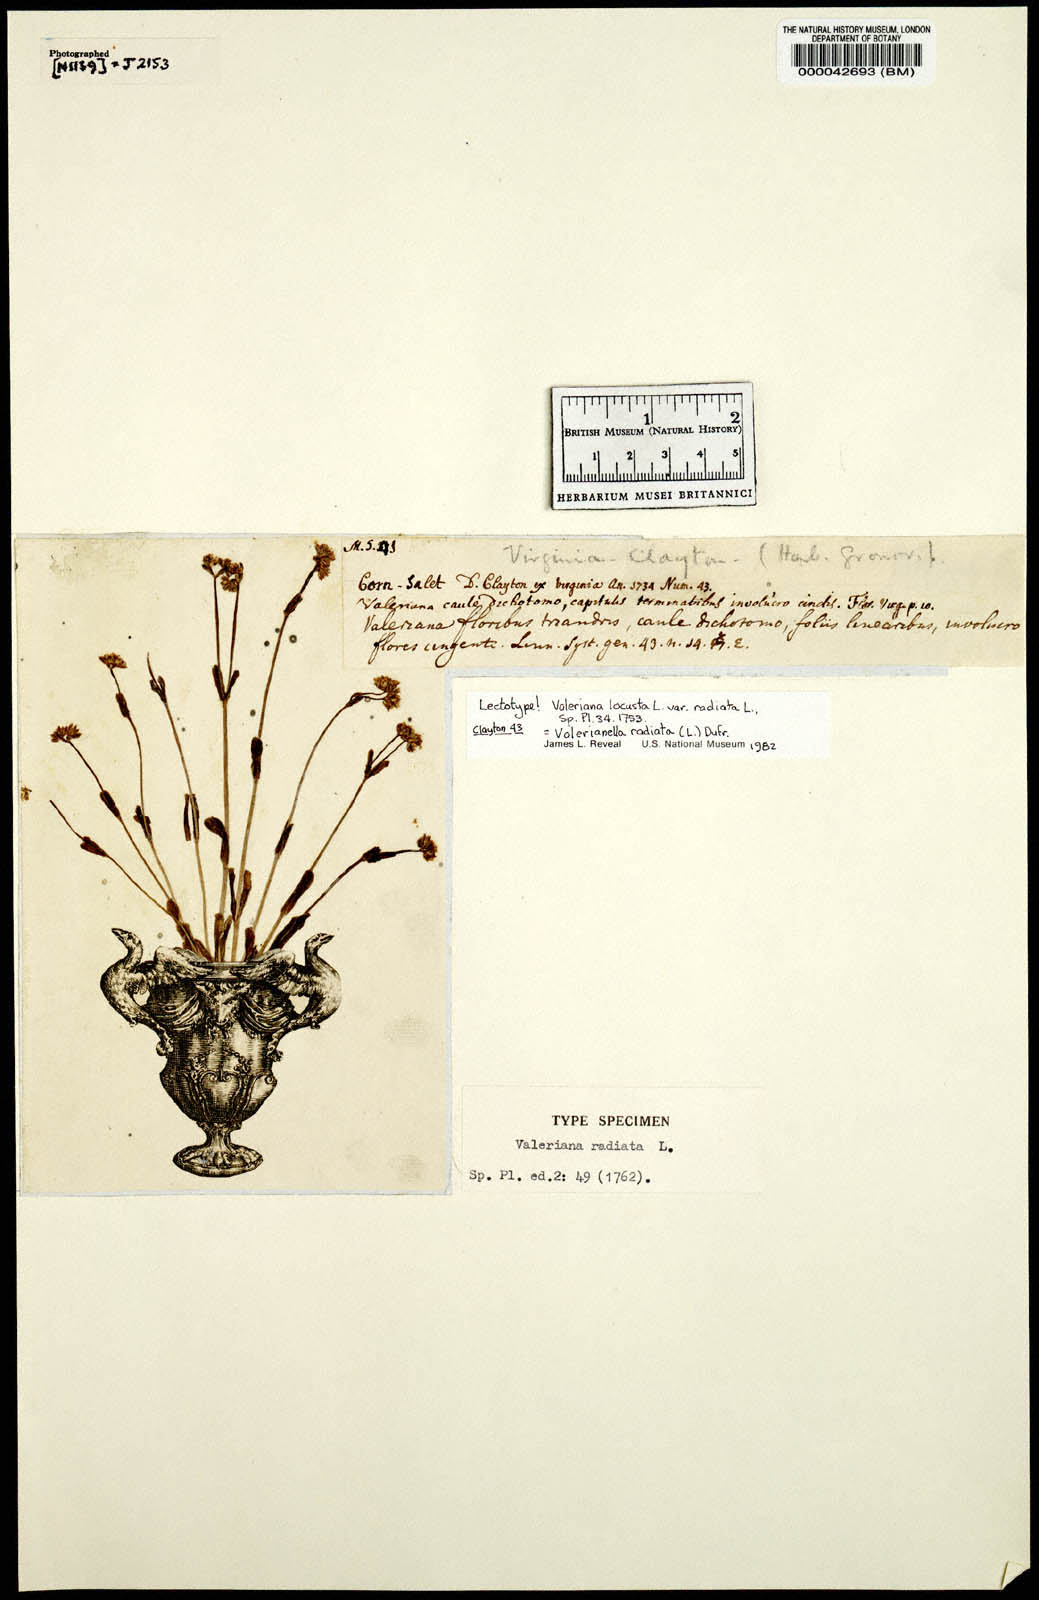 Photographed
[N1139] = J 2153
THE NATURAL HISTORY MUSEUM, LONDON
DEPARTMENT OF BOTANY
000042693 (BM)
1 2
BRITISH MUSEUM (NATURAL HISTORY)
1 2 3 4 5
HERBARIUM MUSEI BRITANNICI
Virginia - Clayton - (Herb. Gronov.).
Corn-Salet D. Clayton ex Virginia An. 1734 Num. 43.
Valeriana caule dichotomo, capitulis terminatibus involucro cinctis. Flor. Virg. p. 10.
Valeriana floribus triandris, caule dichotomo, foliis linearibus, involucro
flores cingente. Linn. Syst. gen. 43. n. 14. E.
Lectotype! Valeriana locusta L. var. radiata L.,
Sp. Pl. 34. 1753.
Clayton 43 = Valerianella radiata (L.) Dufr.
James L. Reveal U.S. National Museum 1982
TYPE SPECIMEN
Valeriana radiata L.
Sp. Pl. ed.2: 49 (1762).